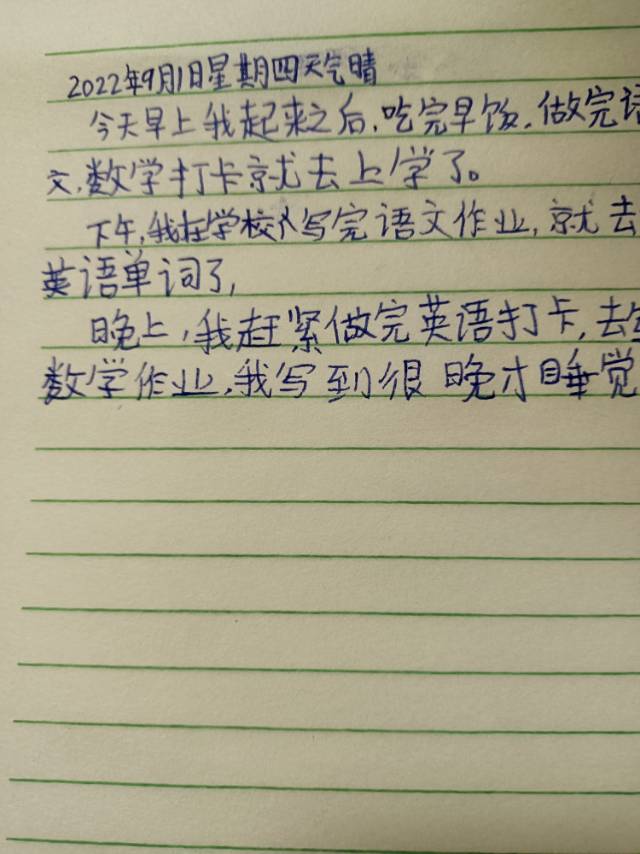 2022年9月1日星期四天气晴
今天早上我起来之后,吃完早饭,做完语
文,数学打卡就去上学了。
下午,我在学校写完语文作业,就去
英语单词了,
晚上,我赶紧做完英语打卡,去写
数学作业,我写到很晚才睡觉